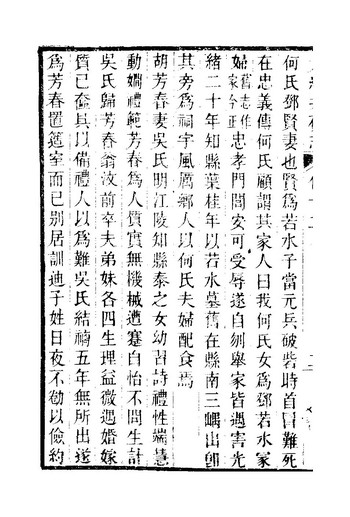 何氏鄧賢妻也賢爲若水子當元兵破砦時首冒難死
在忠義傳何氏顧謂其家人曰我何氏女爲鄧若水冢
婦舊志作家今正忠孝門閭安可受辱遂自刎舉家皆遇害光
緒二十年知縣葉桂年以若水墓舊在縣南三嵎出卽
其旁爲祠宇風厲鄉人以何氏夫婦配食焉
胡芳春妻吳氏明江陵知縣泰之女幼習詩禮性端慧
動嫺禮範芳春爲人質實無機械遭蹇白怡不問生計
吳氏歸芳春翁汝前卒夫弟妹各四生理益微遇婚嫁
質已奩具以備禮人以爲難吳氏結褵五年無所出遂
爲芳春置簉室而已別居訓迪子姓日夜不勌以儉約